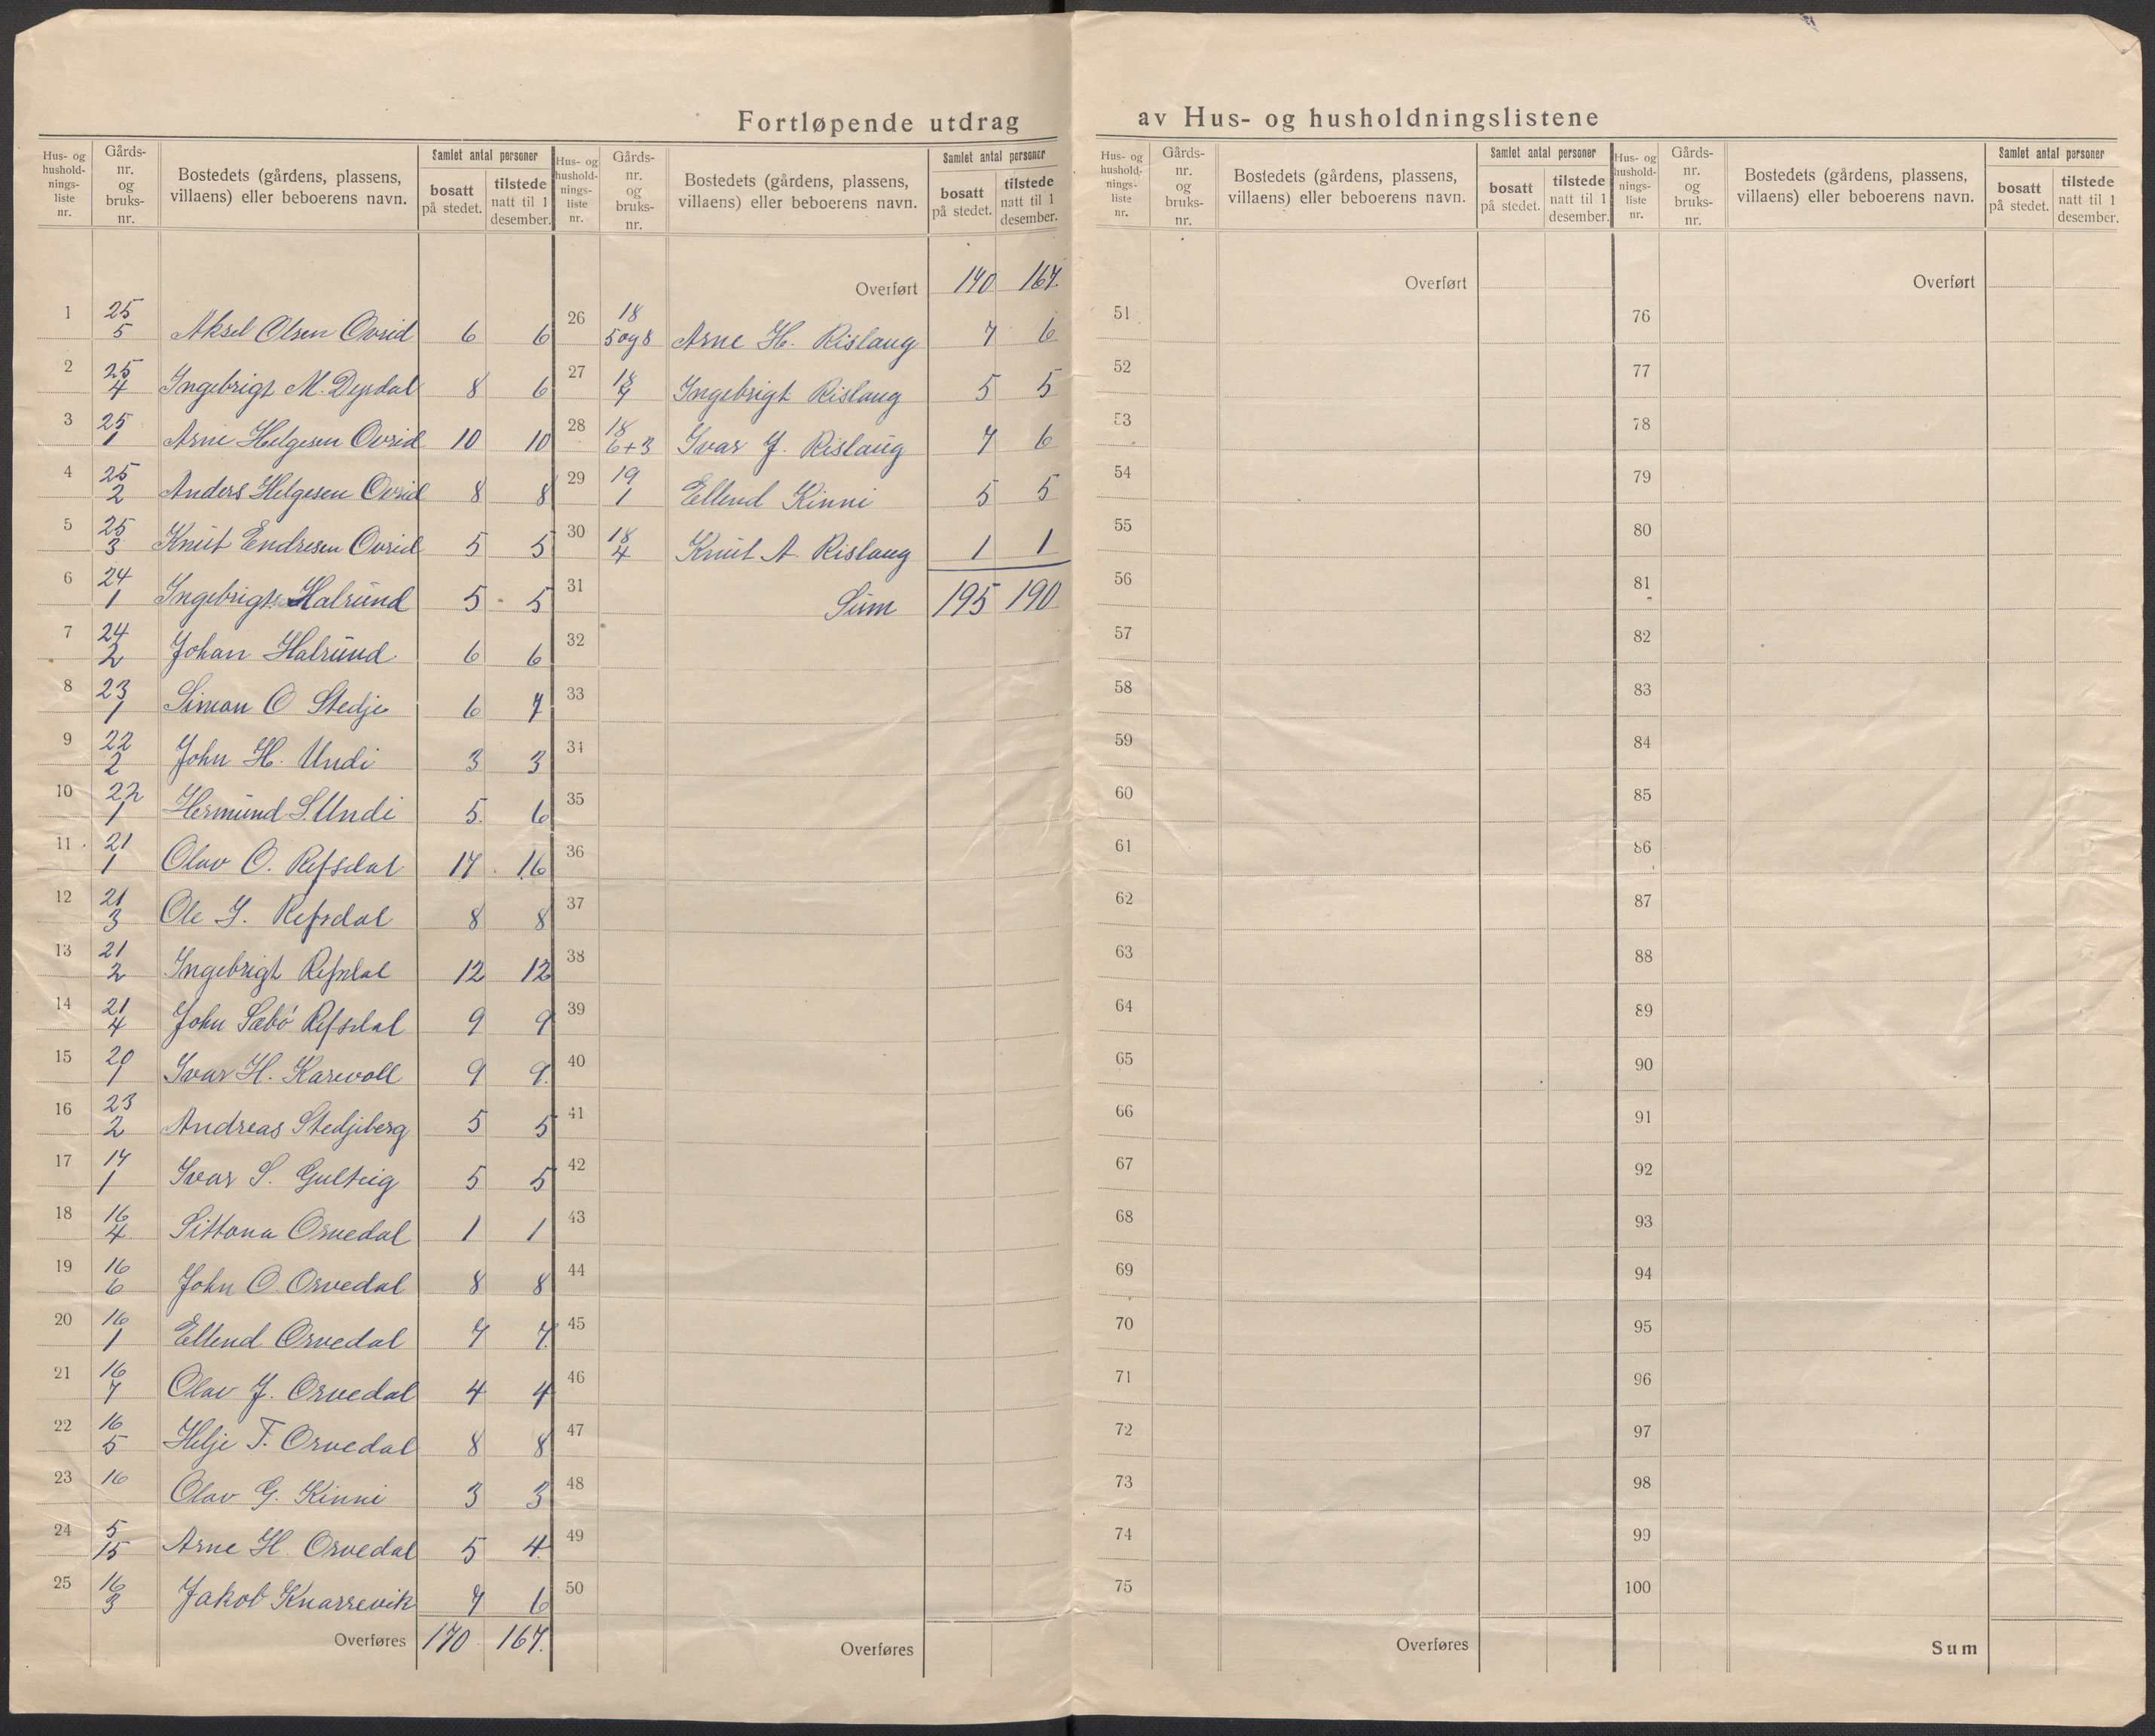 Fortløpende utdrag av Hus- og husholdningslistene
Hus- og hushold-nings-liste nr. Gårds-nr. og bruks-nr. Bostedets (gårdens, plassens, villaens) eller beboerens navn. Samlet antal personer bosatt på stedet. tilstede natt til 1 desember.
1 25 5 Aksel Olsen Ovrid 6 6
2 25 4 Ingebrigt M. Dyrdal 8 6
3 25 1 Arne Helgesen Ovrid 10 10
4 25 2 Anders Helgesen Ovrid 8 8
5 25 3 Knut Endresen Ovrid 5 5
6 24 1 Ingebrigt Halrund 5 5
7 24 2 Johan Halrund 6 6
8 23 1 Simon O Stedje 6 7
9 22 2 John H. Undi 3 3
10 22 1 Hermund S. Undi 5 6
11 21 1 Olav O. Refsdal 17 16
12 21 3 Ole I. Refsdal 8 8
13 21 2 Ingebrigt Refsdal 12 12
14 21 4 John Sæbö Refsdal 9 9
15 20 1 Ivar H. Karevoll 9 9
16 23 2 Andreas Stedjeberg 5 5
17 17 1 Ivar S. Gulteig 5 5
18 16 4 Sittona Orvedal 1 1
19 16 6 John O. Orvedal 8 8
20 16 1 Ellend Orvedal 7 7
21 16 7 Olav J. Orvedal 4 4
22 16 5 Helje T. Orvedal 8 8
23 16 Olav G. Kinni 3 3
24 5 15 Arne H. Orvedal 5 4
25 16 3 Jakob Knarrevik 7 6
Overføres 170 167.
Hus- og hushold-nings-liste nr. Gårds-nr. og bruks-nr. Bostedets (gårdens, plassens, villaens) eller beboerens navn. Samlet antal personer bosatt på stedet. tilstede natt til 1 desember.
Overført 170 167.
26 18 5 og 8 Arne H. Rislaug 7 6
27 18 7 Ingebrigt Rislaug 5 5
28 18 6+3 Ivar J. Rislaug 7 6
29 19 1 Ellend Kinni 5 5
30 18 4 Knut A. Rislaug 1 1
31 Sum 195 190
32
33
34
35
36
37
38
39
40
41
42
43
44
45
46
47
48
49
50
Overføres
Hus- og hushold-nings-liste nr. Gårds-nr. og bruks-nr. Bostedets (gårdens, plassens, villaens) eller beboerens navn. Samlet antal personer bosatt på stedet. tilstede natt til 1 desember.
Overført
51
52
53
54
55
56
57
58
59
60
61
62
63
64
65
66
67
68
69
70
71
72
73
74
75
Overføres
Hus- og hushold-nings-liste nr. Gårds-nr. og bruks-nr. Bostedets (gårdens, plassens, villaens) eller beboerens navn. Samlet antal personer bosatt på stedet. tilstede natt til 1 desember.
Overført
76
77
78
79
80
81
82
83
84
85
86
87
88
89
90
91
92
93
94
95
96
97
98
99
100
Sum